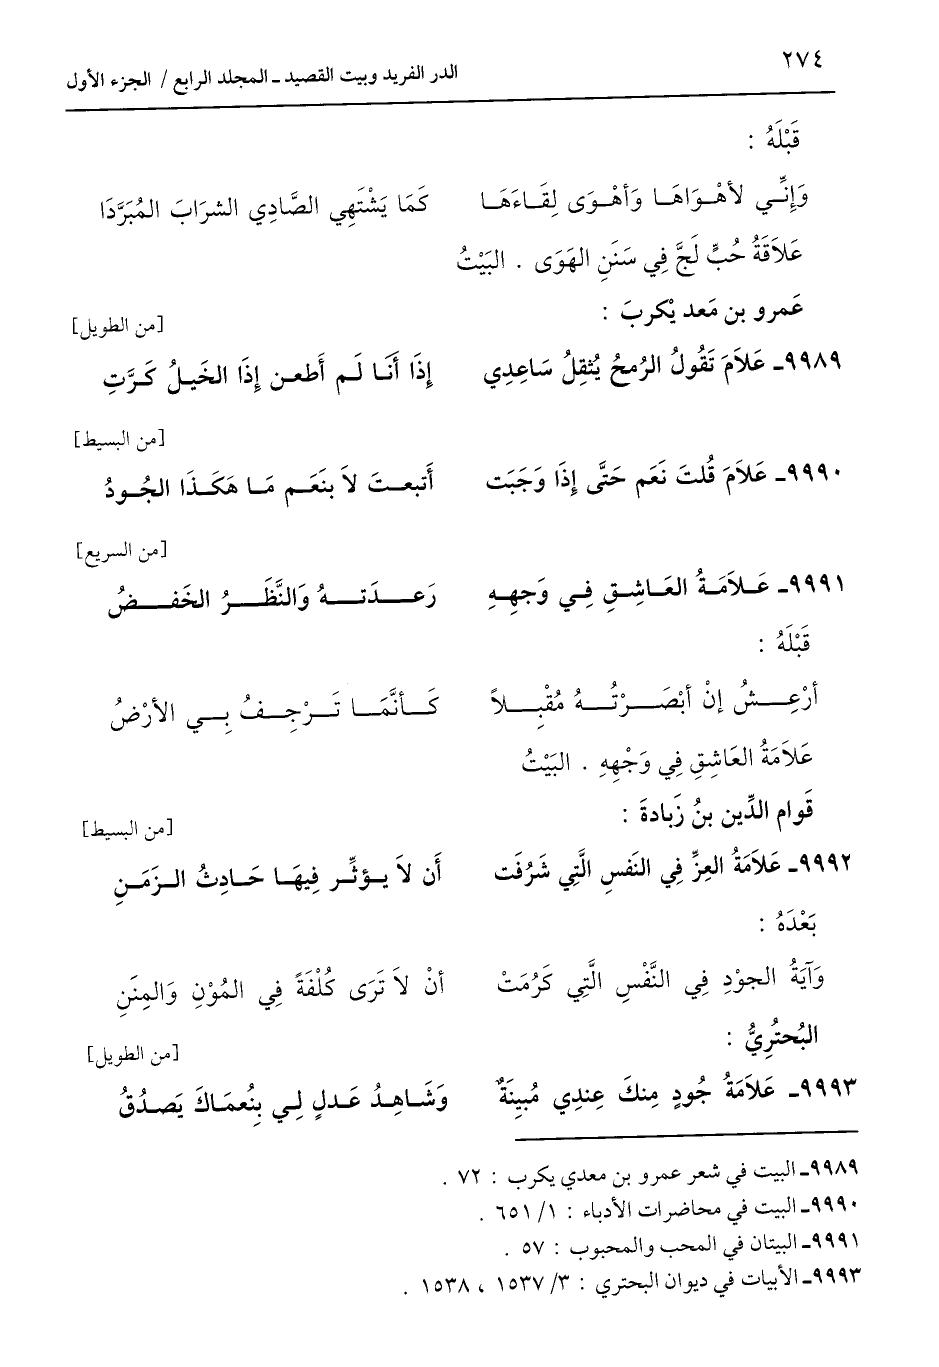 ٢٧٤
الدر الفريد وبيت القصيد ـ المجلد الرابع / الجزء الأول
قَبْلَهُ :
وَإِنِّي لأهْوَاهَا وَأهْوَى لِقَاءَهَا كَمَا يَشْتَهِي الصَّادِي الشرَابَ المُبَرَّدَا
عَلاَقَةُ حُبٍّ لَجَّ فِي سَنَنِ الهَوَى . البَيْتُ
عَمرو بن مَعد يْكربَ :
[من الطويل]
٩٩٨٩ـ عَلاَمَ تَقُولُ الرُمحُ يُثقِلُ سَاعِدِي إِذَا أَنَا لَم أَطعن إِذَا الخَيلُ كَرَّتِ
[من البسيط]
٩٩٩٠ـ عَلاَمَ قُلتَ نَعَم حَتَّى إِذَا وَجَبَت أَتبعتَ لاَ بنَعَم مَا هَكَذَا الجُودُ
[من السريع]
٩٩٩١ـ عَلاَمَةُ العَاشِقِ فِي وَجهِهِ رَعدَتهُ وَالنَّظَرُ الخَفضُ
قَبْلَهُ :
أرْعِشُ إنْ أبْصَرْتُهُ مُقْبِلاً كَأنَّمَا تَرْجِفُ بِي الأرْضُ
عَلاَمَةُ العَاشِقِ فِي وَجْهِهِ . البَيْتُ
قَوام الدِّين بنُ زَبادةَ :
[من البسيط]
٩٩٩٢ـ عَلاَمَةُ العِزِّ فِي النَفسِ الَّتِي شَرُفَت أَن لاَ يؤثِّر فِيهَا حَادِثُ الزَمَنِ
بَعْدَهُ :
وَآيَةُ الجوْدِ فِي النَّفْسِ الَّتِي كَرُمَتْ أنْ لاَ تَرَى كُلْفَةً فِي المُوْنِ وَالمِنَنِ
البُحتُرِيُّ :
[من الطويل]
٩٩٩٣ـ عَلاَمَةُ جُودٍ مِنكَ عِندِي مُبِينَةٌ وَشَاهِدُ عَدلٍ لِي بِنُعمَاكَ يَصدُقُ
٩٩٨٩ـ البيت في شعر عمرو بن معدي يكرب : ٧٢ .
٩٩٩٠ـ البيت في محاضرات الأدباء : ١/ ٦٥١ .
٩٩٩١ـ البيتان في المحب والمحبوب : ٥٧ .
٩٩٩٣ـ الأبيات في ديوان البحتري : ٣/ ١٥٣٧ ، ١٥٣٨ .